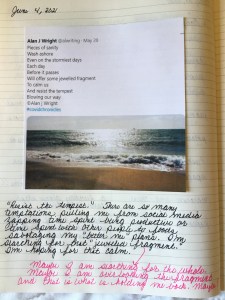 June 4, 202
Alan J Wright @alwriting · May 26
Pieces of sanity
Wash ashore
Even on the stormiest days
Each day
Before it passes
Will offer some jewelled fragment
To calm us
And resist the tempest
Blowing our way
©Alan J Wright
"Resist the tempest." There are so many
temptations pulling me from social media
zapping time spent being productive or
time spent with other pupils to foods
sabotaging my "better me" plans. I'm
searching for that "jeweled fragment."
I'm hoping for that calm.
Maybe I am searching for the whole.
Maybe I am overlooking the fragments
and this is what is holding me back. Maybe